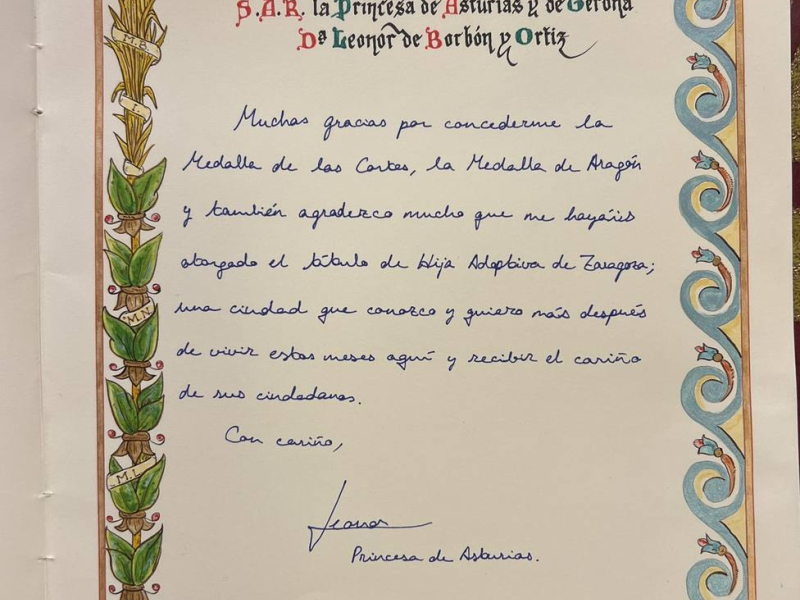 S.A.R. la Princesa de Asturias y de Gerona
Dª Leonor de Borbón y Ortiz
M.B.
I.
M.N.
M.L.
Muchas gracias por concederme la
Medalla de las Cortes, la Medalla de Aragón
y también agradezco mucho que me hayáis
otorgado el título de Hija Adoptiva de Zaragoza;
una ciudad que conozco y quiero más después
de vivir estos meses aquí y recibir el cariño
de sus ciudadanos.
Con cariño,
Leonor
Princesa de Asturias.